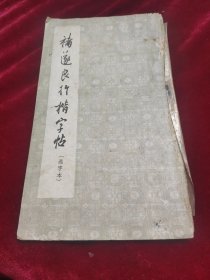 褚遂良行楷字帖
(选字本)